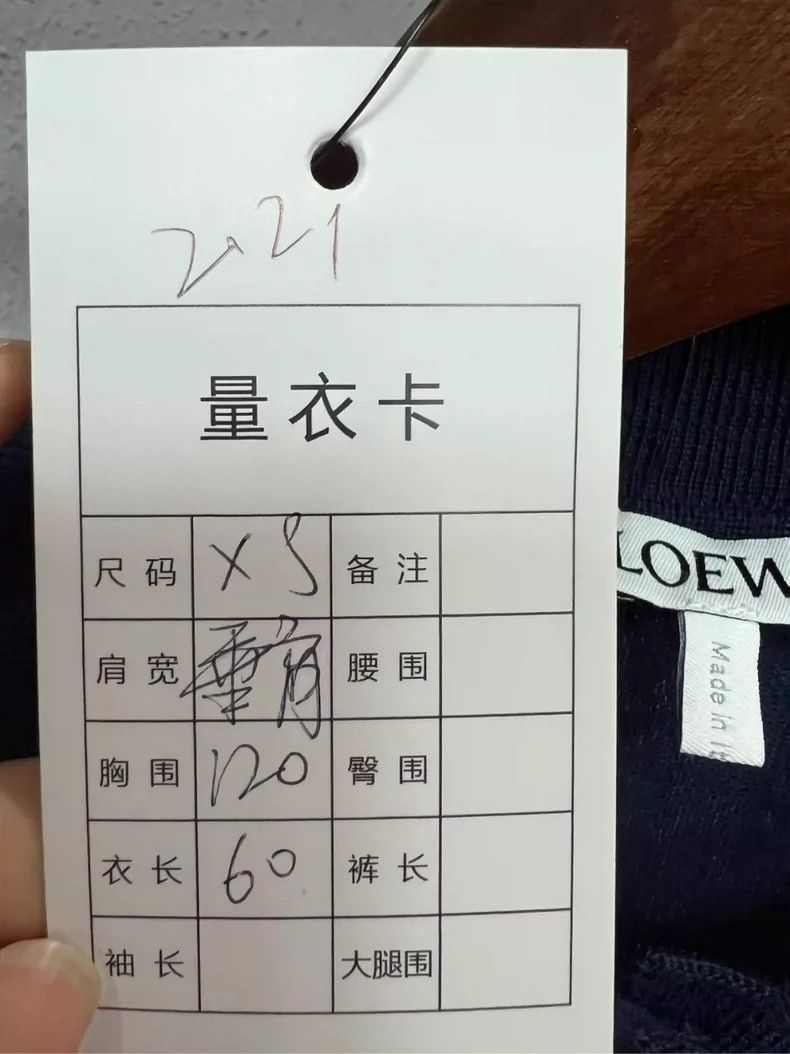 2021
量衣卡
尺码 XS 备注
肩宽 垂肩 腰围
胸围 120 臀围
衣长 60 裤长
袖长 大腿围
LOEW
Made in